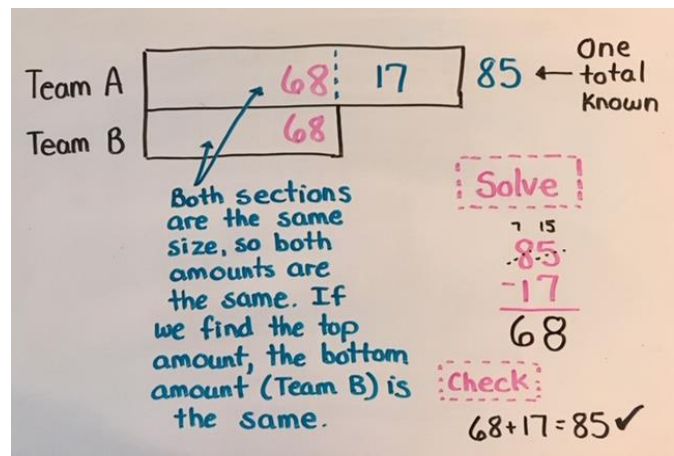 Team A 68 17 85 ← One
total
Known
Team B 68
Both sections
are the same
size, so both
amounts are
the same. If
we find the top
amount, the bottom
amount (Team B) is
the same.
Solve
7 15
85
-17
68
Check:
68+17=85✓